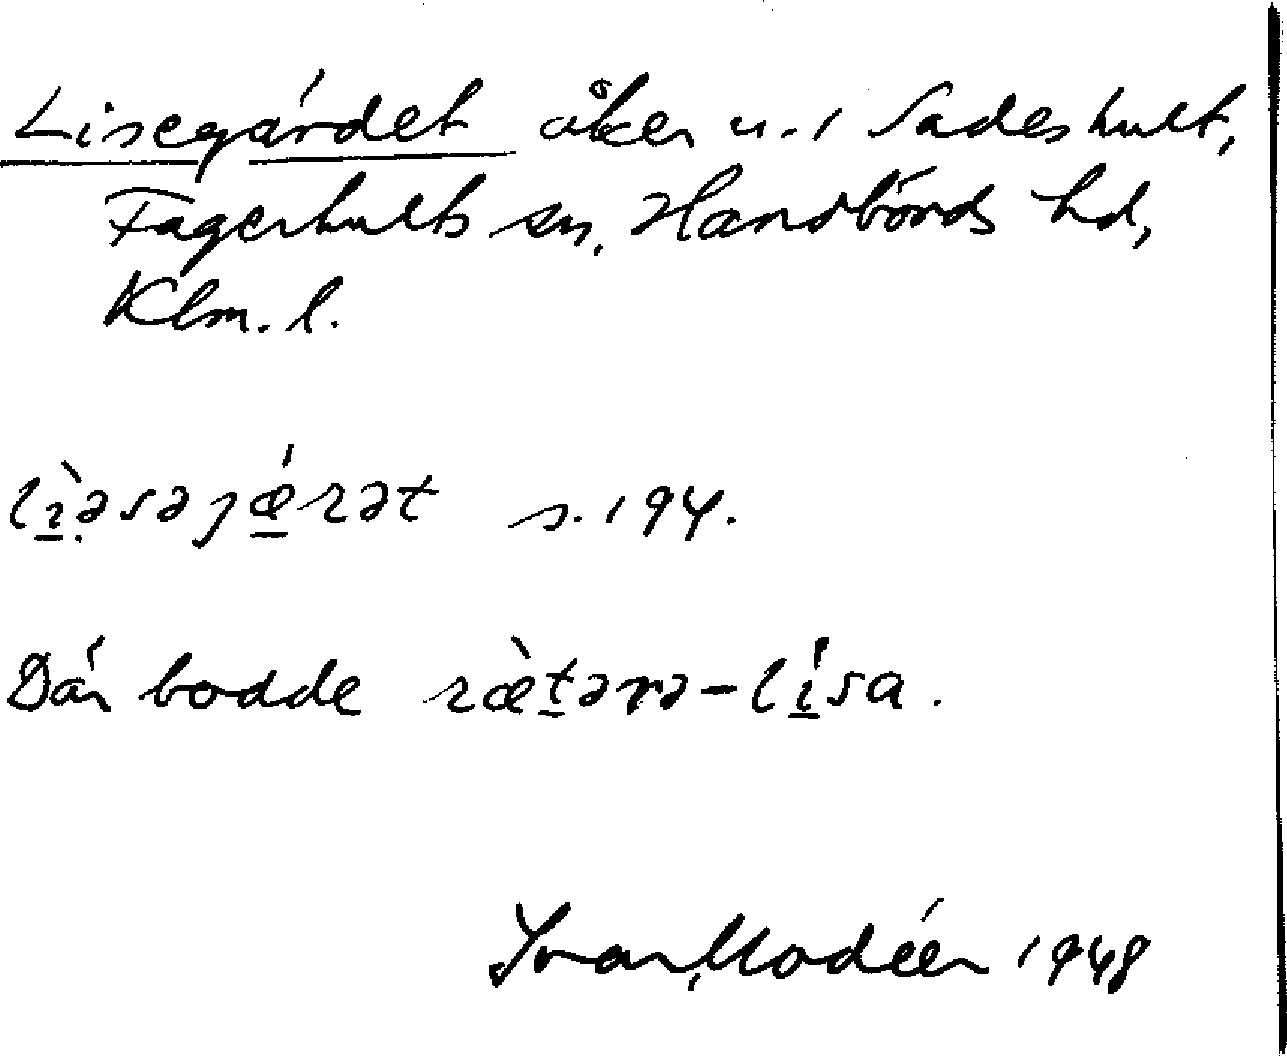 Lisegärdet åker u. 1 Sadeshult,
Fagerhults sn, Handbörds hd,
Klm. l.
lìəsəȷǽrət s. 194.
Där bodde ræ̀tərə-lísa.
Ivar Modéer 1948